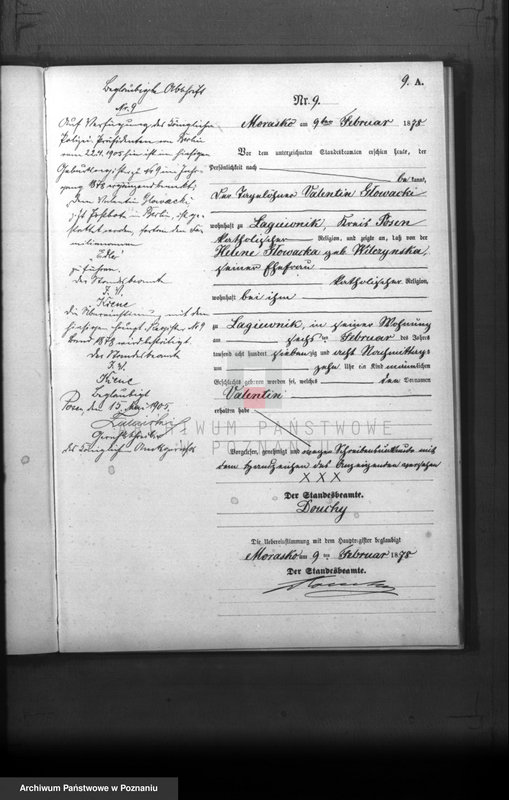 9. A.
Beglaubigte Abschrift
Nr. 9
Auf Verfügung des Königlichen
Polizei-Präsidenten in Berlin
vom 22.4.1905 ist im hiesigen
Geburtsregister
dem Valentin Głowacki
in Berlin, ist ge-
stattet worden, fortan den Fa-
miliennamen
"Adler"
zu führen.
Der Standesbeamte
J. V.
Kiene
Die Übereinstimmung mit dem
hiesigen Haupt-Register Nr 9
beglaubigt.
Der Standesbeamte
J. V.
Kiene
Beglaubigt
Posen den 15. Mai 1905.
Gerichtsschreiber
des Königlichen Amtsgerichts
Nr. 9.
Morasko am 9ten Februar 1878
Vor dem unterzeichneten Standesbeamten erschien heute, der
Persönlichkeit nach
bekannt,
der Tagelöhner Valentin Głowacki
wohnhaft zu Łagiewnik, Kreis Posen
katholischer Religion, und zeigte an, daß von der
Helene Głowacka geb. Wilczynska,
seiner Ehefrau
katholischer Religion,
wohnhaft bei ihm
zu Łagiewnik, in seiner Wohnung
am sechs ten Februar des Jahres
tausend acht hundert siebenzig und acht Nachmittags
um zehn Uhr ein Kind männlichen
Geschlechts geboren worden sei, welches den Vornamen
Valentin
erhalten habe
Vorgelesen, genehmigt und wegen Schreibensunkunde mit
dem Handzeichen des Anzeigenden versehen
XXX
Der Standesbeamte.
Douchy
Die Uebereinstimmung mit dem Hauptregister beglaubigt
Morasko am 9 ten Februar 1878
Der Standesbeamte.
ARCHIWUM PAŃSTWOWE
W POZNANIU
Archiwum Państwowe w Poznaniu